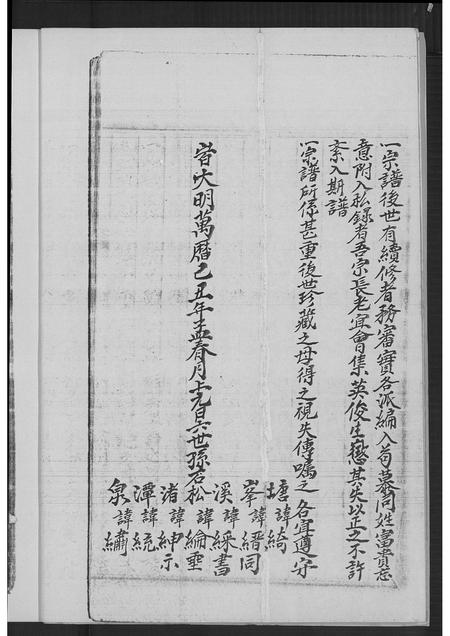 一宗譜後世有續修者務審實各派編入苟慕同姓富貴恣
意附入私錄者吾宗長老宜會集英俊生懲其失以正之不許
紊入斯譜
一宗譜所係甚重後世珍藏之毋得之視失傳嘱之各宜遵守
旹大明萬曆己丑年孟春月上元日六世孫石松
塘諱綺
峯諱縉同
溪諱綵書
諱綸垂
渚諱紳示
潭諱統
泉諱繡